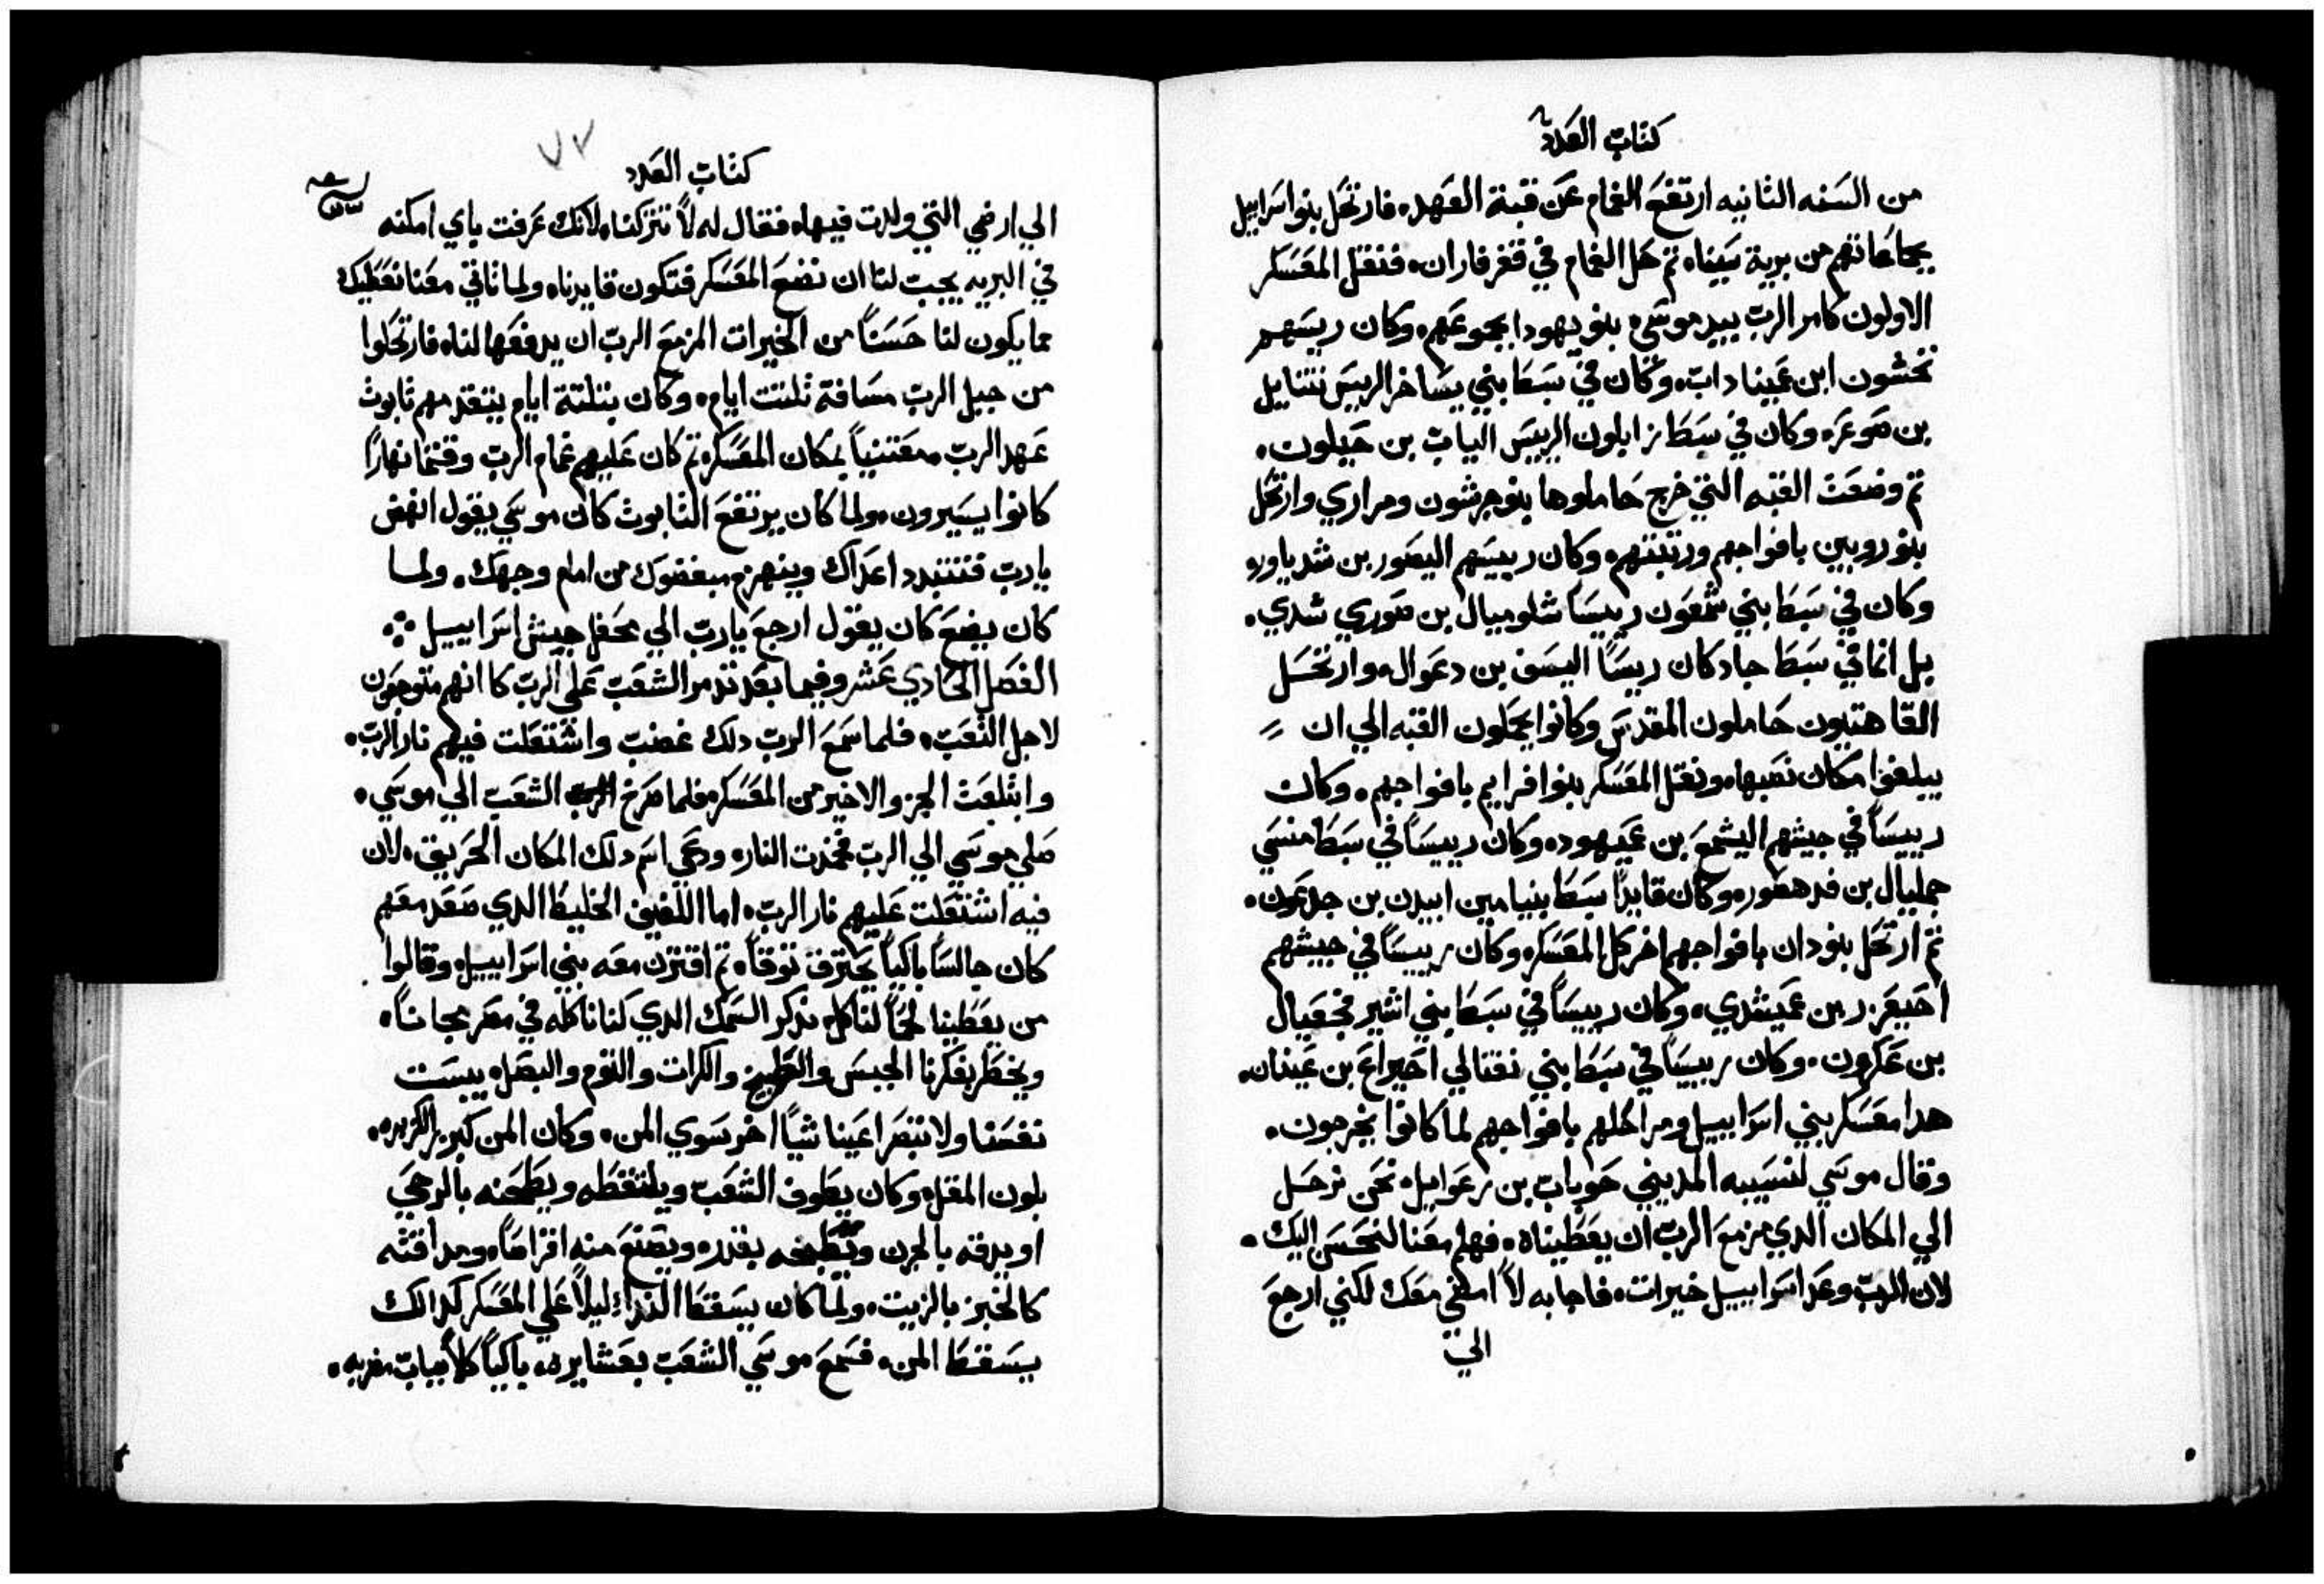 كتاب العدد
من السنه الثانيه ارتفع الغمام عن قبة العهد، فارتحل بنو اسراييل
بجماعاتهم من برية سينا، ثم حل الغمام في قفر فاران، فنقل المعسكر
الاولون كامر الرب بيد موسى، بنو يهودا بجموعهم، وكان رييسهم
نحشون ابن عميناداب، وكان في سبط بني يساخر الرييس نتنايل
بن صوعر، وكان في سبط زابلون الرييس الياب بن حيلون،
ثم وضعت القبه التي خرج حاملوها بنو جرشون ومراري وارتحل
بنو روبين بافواجهم ورتبتهم، وكان رييسهم اليصور بن شدياور،
وكان في سبط بني شمعون رييسًا شلوميال بن صوري شدي،
بل انما في سبط جاد كان رييسًا اليسف بن دعوال، وارتحل
القاهتيون حاملون المقدس وكانوا يحملون القبه الي ان
يبلغوا مكان نصبها، ونقل المعسكر بنوا افرايم بافواجهم، وكان
رييسًا في جيشهم اليشمع بن عميهود، وكان رييسًا في سبط منسي
جمليال بن فدهصور، وكان قايدًا سبط بنيامين ابيدن بن جدعون،
ثم ارتحل بنو دان بافواجهم اخر كل المعسكر، وكان رييسًا في جيشهم
احيعزر بن عميشدي، وكان رييسًا في سبط بني اشير فجعيال
بن عكرون، وكان رييسًا في سبط بني نفتالي احيراع بن عينان،
هدا معسكر بني اسراييل ومراحلهم بافواجهم لما كانوا يخرجون،
وقال موسي لنسيبه المديني حوباب بن رعوايل، نحن نرحل
الي المكان الدي مزمع الرب ان يعطيناه، فهلم معنا لنحسن اليك،
لان الرب وعد اسراييل خيرات، فاجابه لا امضي معك لكني ارجع
الي
كتاب العدد
٧٢
الي ارضي التي ولدت فيها، فقال له لا تتركنا، لانك عرفت باي امكنه
في البريه يجب لنا ان نضع المعسكر فتكون قايدنا، ولما تاتي معنا نعطيك
مما يكون لنا حسنًا من الخيرات المزمع الرب ان يدفعها لنا، فارتحلوا
من جبل الرب مسافة ثلثت ايام، وكان بثلثة ايام يتقدمهم تابوت
عهد الرب معتنيًا بمكان المعسكر، ثم كان عليهم غمام الرب وقتما نهارًا
كانوا يسيرون، ولما كان يرتفع التابوت كان موسي يقول انهض
يارب فتتبدد اعداك وينهزم مبغضوك من امام وجهك، ولما
كان يضع كان يقول ارجع يارب الي محفل جيش اسراييل
الفصل الحادي عشر وفيما بعد تدمر الشعب على الرب كا انهم متوجعون
لاجل التعب، فلما سمع الرب دلك غضب واشتعلت فيهم نار الرب،
وابتلعت الجزو الاخير من المعسكر، فلما صرخ الشعب الي موسي،
صلي موسي الي الرب فخمدت النار، ودعي اسم دلك المكان الحريق، لان
فيه اشتعلت عليهم نار الرب، اما اللفيف الخليط الدي صعد معهم
كان جالسًا باكيًا يحترف توقاً، ثم اقترن معه بني اسراييل، وقالوا
من يعطينا لحمًا لناكل، ندكر السمك الدي كنا ناكله في مصر مجانًا،
ويخطر بفكرنا الجبس والبطيخ والكرات والثوم والبصل، يبست
نفسنا ولا تبصر اعينا شيًا اخر سوي المن، وكان المن كبزر الكزبره،
بلون المقل، وكان يطوف الشعب ويلتقطه ويطحنه بالرحي
او يدقه بالجرن ويطبخه بقدر، ويصنع منه اقراصًا، ومداقته
كالخبز بالزيت، ولما كان يسقط النداء ليلًا علي المعسكر كدالك
يسقط المن، فسمع موسي الشعب بعشايره، باكيًا كلا بباب مضربه،